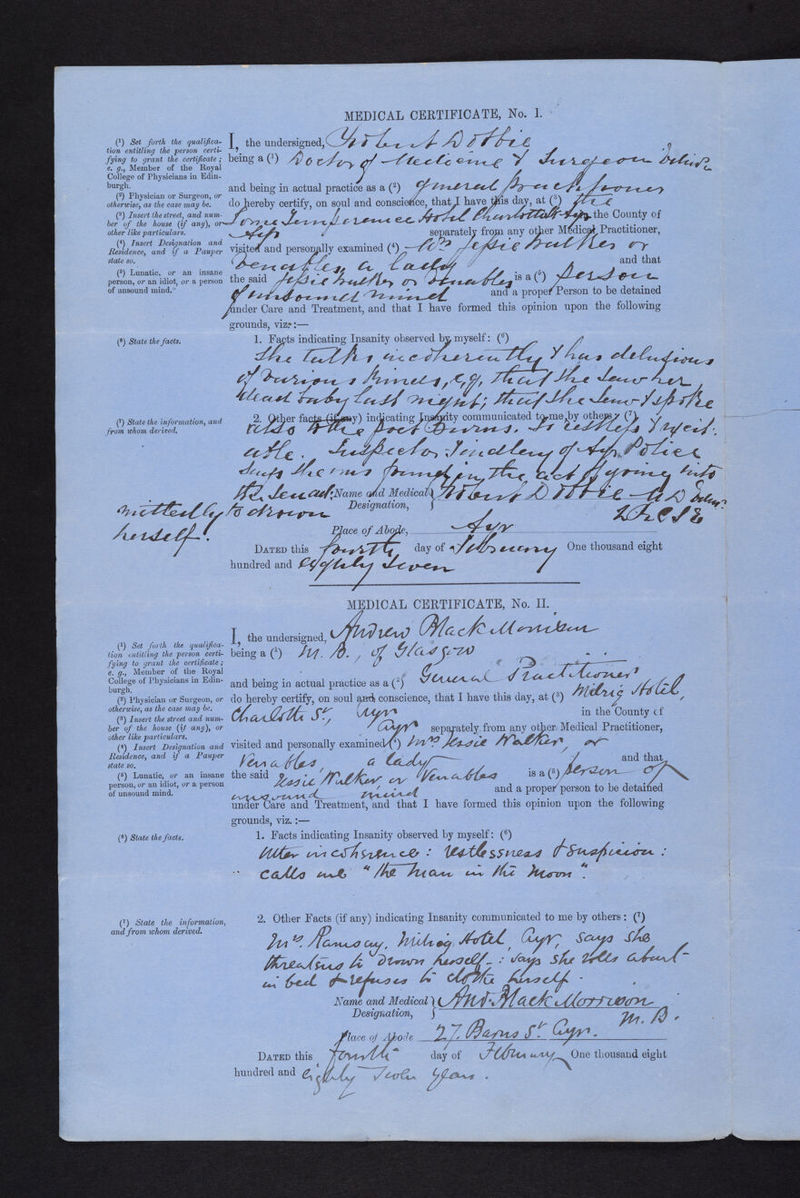 MEDICAL CERTIFICATE, No. I.
(¹) Set forth the qualifica-
tion entitling the person certi-
fying to grant the certificate;
e. g., Member of the Royal
College of Physicians in Edin-
burgh.
(²) Physician or Surgeon, or
otherwise, as the case may be.
(³) Insert the street, and num-
ber of the house (if any), or
other like particulars.
(⁴) Insert Designation and
Residence, and if a Pauper
state so.
(⁵) Lunatic, or an insane
person, or an idiot, or a person
of unsound mind.
I, the undersigned, Robert Dobbie
being a (¹) Doctor of Medicine & Surgeon Edinr.
and being in actual practice as a (²) General Practitioner
do hereby certify, on soul and conscience, that I have this day, at (³) the
Temperance Hotel Charlotte St Ayr in the County of
Ayr separately from any other Medical Practitioner,
visited and personally examined (⁴) Mrs Jessie Walker or
Venables, a lady and that
the said Jessie Walker or Venables is a (⁵) Person
of unsound mind and a proper Person to be detained
under Care and Treatment, and that I have formed this opinion upon the following
grounds, viz.:—
(⁶) State the facts.
1. Facts indicating Insanity observed by myself: (⁶)
She talks incoherently & has delusions
of various kinds, e.g, that she saw her
dead baby last night; that she saw & spoke
also to the poet Burns. Is restless & excit-
able.
(⁷) State the information, and
from whom derived.
2. Other facts (if any) indicating Insanity communicated to me by others: (⁷)
Inspector Tindley of Ayr Police
says she was found in the act of going into
the sea admittedly to drown
herself.
Name and Medical Designation, Robert Dobbie M D Edinr.
L F R C S E
Place of Abode, Ayr
DATED this fourth day of February One thousand eight
hundred and eighty seven
MEDICAL CERTIFICATE, No. II.
(¹) Set forth the qualifica-
tion entitling the person certi-
fying to grant the certificate;
e. g., Member of the Royal
College of Physicians in Edin-
burgh.
(²) Physician or Surgeon, or
otherwise, as the case may be.
(³) Insert the street and num-
ber of the house (if any), or
other like particulars.
(⁴) Insert Designation and
Residence, and if a Pauper
state so.
(⁵) Lunatic, or an insane
person, or an idiot, or a person
of unsound mind.
I, the undersigned, Andrew Black Morrison
being a (¹) M. B., of Glasgow
and being in actual practice as a (²) General Practitioner
do hereby certify, on soul and conscience, that I have this day, at (³) Milrig Hotel,
Charlotte St., Ayr in the County of
Ayr separately from any other Medical Practitioner,
visited and personally examined (⁴) Mrs Jessie Walker, or
Venables, a lady and that
the said Jessie Walker or Venables is a (⁵) person of
unsound mind and a proper person to be detained
under Care and Treatment, and that I have formed this opinion upon the following
grounds, viz.:—
(⁶) State the facts.
1. Facts indicating Insanity observed by myself: (⁶)
Utter incoherence: restlessness & suspicion:
calls me "the man in the moon".
(⁷) State the information,
and from whom derived.
2. Other Facts (if any) indicating Insanity communicated to me by others: (⁷)
Mrs. Ramsay, Milrig Hotel, Ayr, says she
threatens to drown herself -: says she rolls about
in bed & refuses to clothe herself.
Name and Medical Designation, And. Black Morrison
M. B.
Place of Abode 27 Barns St. Ayr.
DATED this fourth day of February One thousand eight
hundred and eighty seven years.